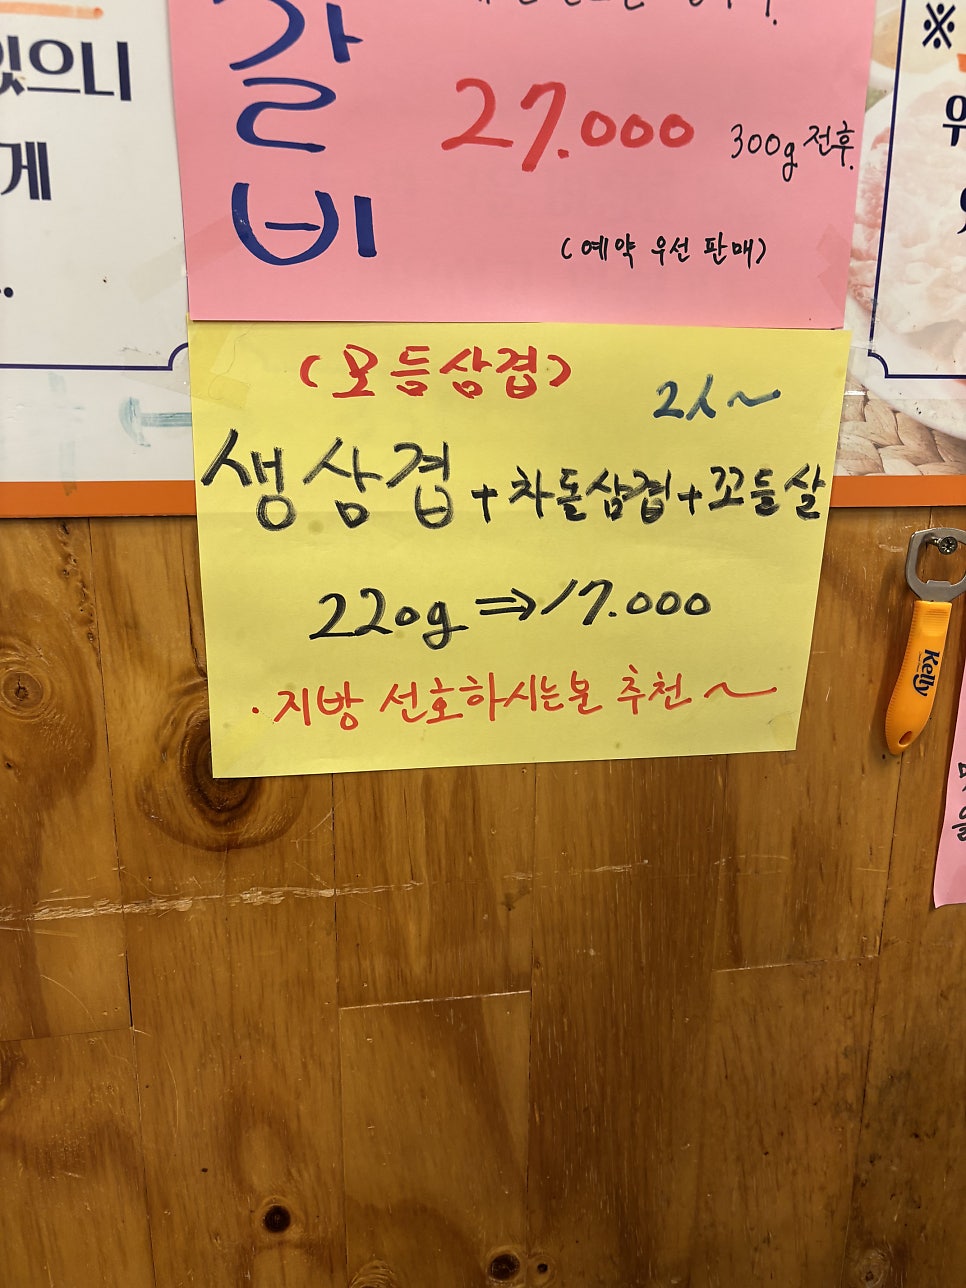 있으니
게
갈
비
27.000 300g 전후.
(예약 우선 판매)
(모듬삼겹)
2人~
생삼겹+차돌삼겹+꼬들살
220g⇒17.000
·지방 선호하시는분 추천~
※
Kelly